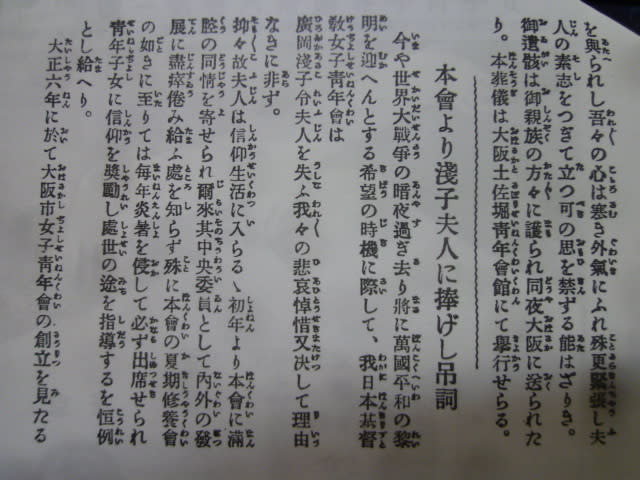 を與られし吾々の心は寒き外氣にふれ殊更緊張し夫
人の素志をつぎて立つ可の思を禁ずる能はざりき。
御遺骸は御親族の方々に護られ同夜大阪に送られた
り。本葬儀は大阪土佐堀青年會館にて擧行せらる。
本會より淺子夫人に捧げし吊詞
今や世界大戰爭の暗夜過ぎ去り將に萬國平和の黎
明を迎へんとする希望の時機に際して、我日本基督
敎女子青年會は
廣岡淺子令夫人を失ふ我々の悲哀悼惜又決して理由
なきに非ず。
抑々故夫人は信仰生活に入らるゝ初年より本會に滿
腔の同情を寄せられ爾來其中央委員として內外の發
展に盡瘁倦み給ふ處を知らず殊に本會の夏期修養會
の如きに至りては每年炎暑を侵して必ず出席せられ
青年子女に信仰を奬勵し處世の途を指導するを恒例
とし給へり。
大正六年に於て大阪市女子青年會の創立を見たる